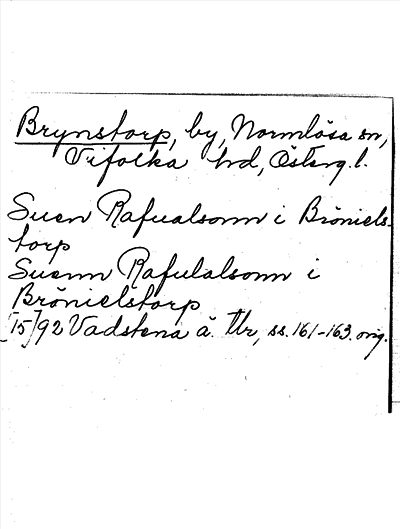 Brynstorp, by, Normlösa sn,
Vifolka hd, Österg. l.
Suen Rafualsonn i Bröniels-
torp
Suenn Rafulalsonn i
Brönielstorp
[15]92 Vadstena ä. tlr, ss. 161-163. orig.